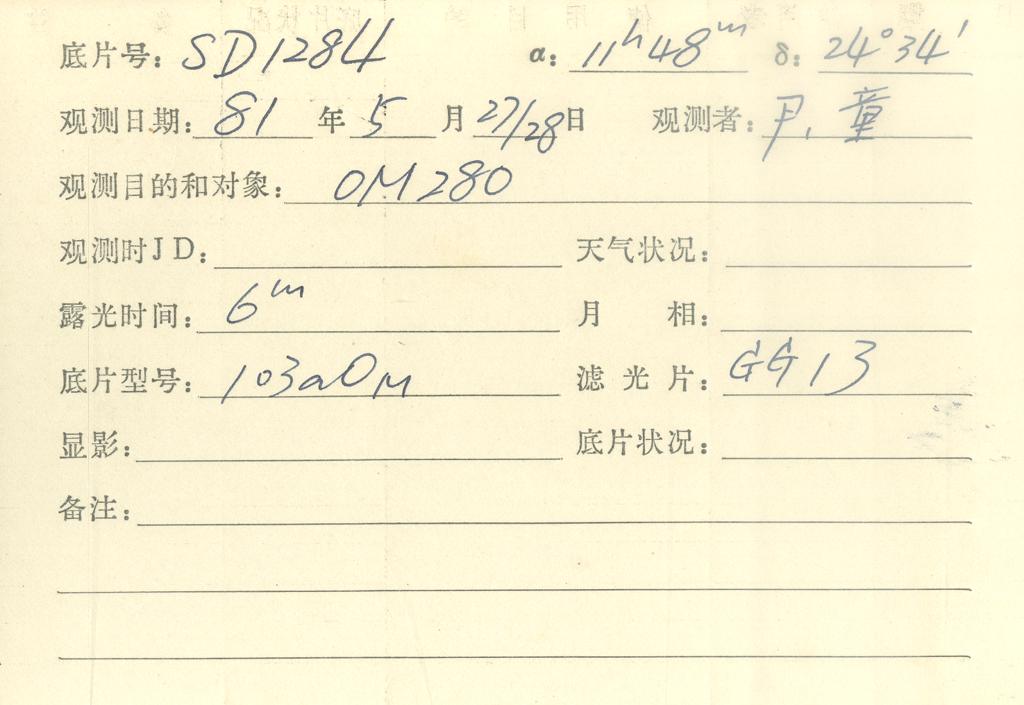 底片号: SD1284 α: 11ʰ48ᵐ δ: 24°34′
观测日期: 81 年 5 月 27/28 日 观测者: 尹. 童
观测目的和对象: OM280
观测时JD: 天气状况:
露光时间: 6ᵐ 月 相:
底片型号: 103aO 滤光片: GG13
显影: 底片状况:
备注: